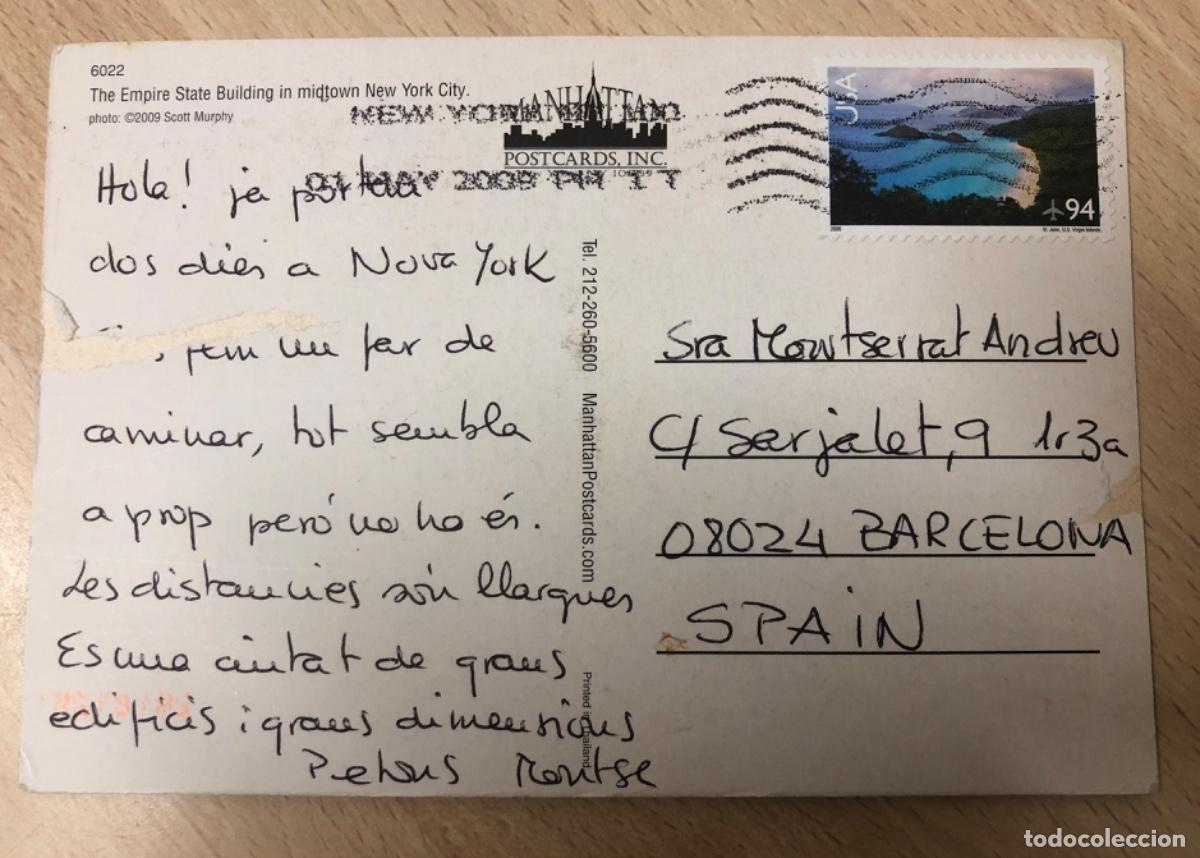 6022
The Empire State Building in midtown New York City.
photo: ©2009 Scott Murphy
MANHATTAN
POSTCARDS, INC.
NEW YORK
MAY 2009 PM
USA
94
2008
St. John, U.S. Virgin Islands
Hola! ja
dos dies a Nova York
un far de
caminar, tot sembla
a prop però no ho és.
Les distancies són llargues
Es una ciutat de grans
edificis i grans dimensions
Petons Montse
Tel. 212-260-5600 ManhattanPostcards.com
Printed in Thailand
Sra Montserrat Andreu
C/ Serjalet, 9 1r3a
08024 BARCELONA
SPAIN
todocoleccion